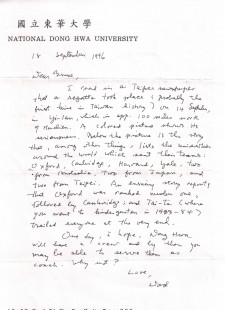 國立東華大學
NATIONAL DONG HWA UNIVERSITY
18 September, 1996
Dear
I read in a Taipei newspaper
that a regatta took place (probably the
first time in Taiwan history) on 14 Septem,
in Yi-lan, which is app. 100 miles north
of Hualien. A colored picture shows the
seriousness. Below the picture is the story
that, among other things, lists the universities
around the world which sent their teams:
Oxford, Cambridge, Harvard, Yale, two
from Australia, two from Japan, and
two from Taipei. An evening story reports
that Oxford was ranked number one,
followed by Cambridge; and Tai-Ta (where
you went to kindergarten in 1983-84)
trailed everyone at the very end.
One day, I hope, Dong Hwa
will have a crew and by then you
may be able to serve them as
coach. Why not?
Love,
Dad